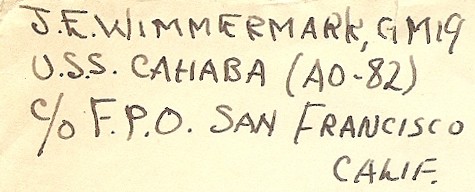 J.E. WIMMERMARK, GM19
U.S.S. CAHABA (AO-82)
C/O F.P.O. SAN FRANCISCO
CALIF.